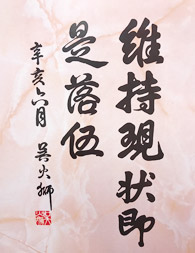 維持現状即
是落伍
辛亥六月 吳火獅